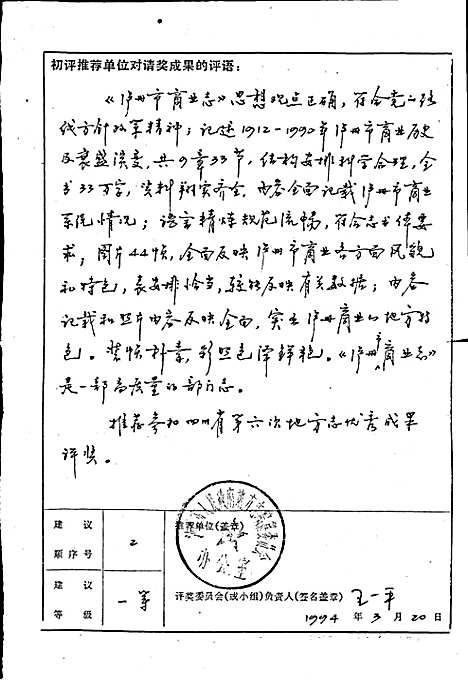 初评推荐单位对请奖成果的评语：
《泸州市商业志》思想观点正确，符合党的路
线方针政策精神；记述1912-1990年泸州市商业历史
及衰盛演变，共9章33节，结构安排科学合理，全
书33万字，资料翔实齐全，内容全面记载泸州市商业
系统情况；语言精炼规范流畅，符合志书体要
求；图片44帧，全面反映泸州市商业各方面风貌
和特色，表安排恰当，较好反映有关数据；内容
记载和照片内容反映全面，突出泸州商业的地方特
色。装帧朴素，彩照色泽鲜艳。《泸州市商业志》
是一部高质量的部门志。
推荐参加四川省第六次地方志优秀成果
评奖。
建议
顺序号
2
推荐单位(盖章)
办公室
建议
等级
一等
评奖委员会(或小组)负责人(签名盖章) 王一平
1994年3月20日